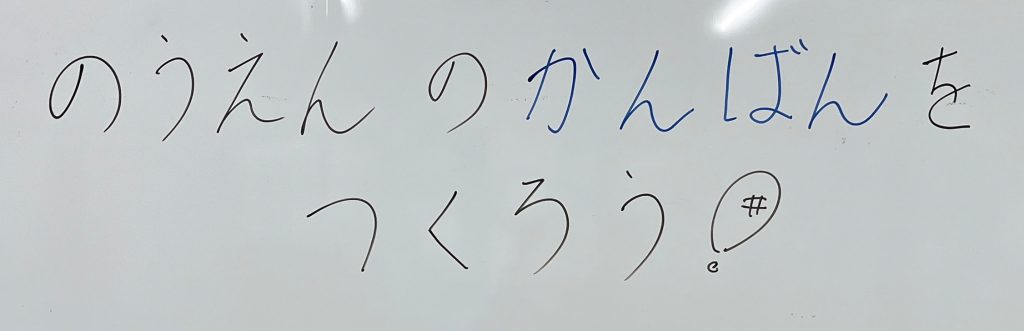 のうえんのかんばんを
つくろう!